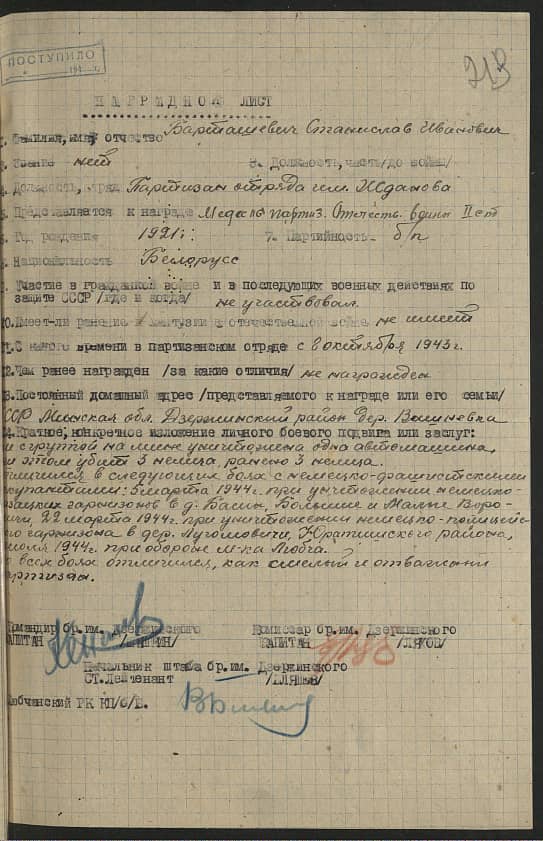 ПОСТУПИЛО
213
НАГРАДНОЙ ЛИСТ
1. Фамилия, имя, отчество Барташевич Станислав Иванович
2. Звание нет 3. Должность, часть /до войны/
4. Должность, отряд Партизан отряда им. Жданова
5. Представляется к награде Медаль партиз. Отечеств. войны II ст
6. Год рождения 1921 г. 7. Партийность б/п
8. Национальность Белорусс
9. Участие в гражданской войне и в последующих военных действиях по
защите СССР /где и когда/ не участвовал.
10. Имеет-ли ранения и контузии в отечественной войне не имеет
11. С какого времени в партизанском отряде с 8 октября 1943 г.
12. Чем ранее награжден /за какие отличия/ не награжден
13. Постоянный домашний адрес /представляемого к награде или его семьи/
ССР Минская обл. Дзержинский район дер.
14. Краткое, конкретное изложение личного боевого подвига или заслуг:
с группой на мине уничтожена одна автомашина,
и этом убит 3 немца, ранено 3 немца.
тличился в следующих боях с немецко-фашистскими
купантами: 5 марта 1944 г. при уничтожении немецко-
зацких гарнизонов в д. Басин, Большие и Малые Воро-
ичи, 22 марта 1944 г. при уничтожении немецко-полицейс-
го гарнизона в дер. Лугомовичи, Юратишского района,
июля 1944 г. при обороне м-ка Любча.
о всех боях отличился, как смелый и отважный
артизан.
Командир бр. им. Дзержинского Комиссар бр. им. Дзержинского
КАПИТАН КАПИТАН /ЛЯХОВ/
Начальник штаба бр. им. Дзержинского
СТ. Лейтенант
Любчанский РК КП/б/Б.